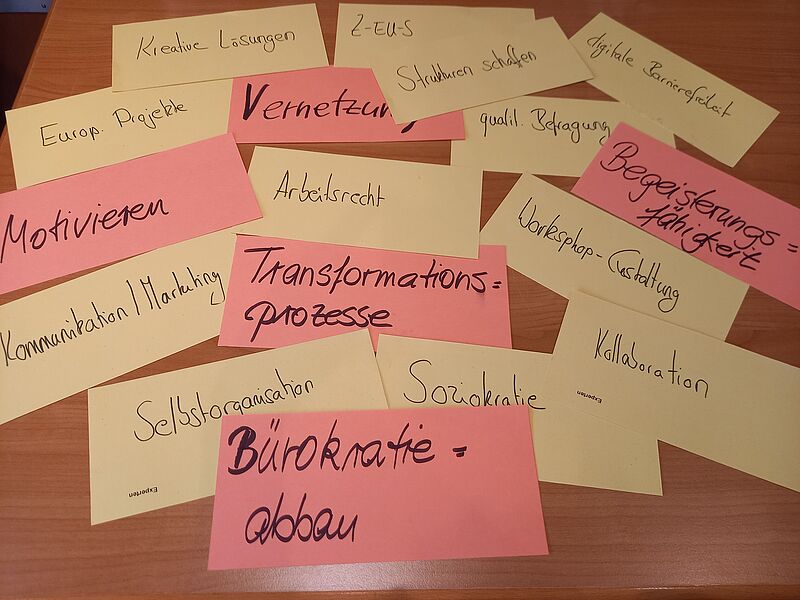 Kreative Lösungen
Z-EU-S
Strukturen schaffen
digitale Barrierefreiheit
Europ. Projekte
Vernetzung
qualit. Befragung
Begeisterungs=
fähigkeit
Motivieren
Arbeitsrecht
Workshop-Gestaltung
Kommunikation/Marketing
Transformations=
prozesse
Kollaboration
Experten
Selbstorganisation
Experten
Soziokratie
Bürokratie=
abbau